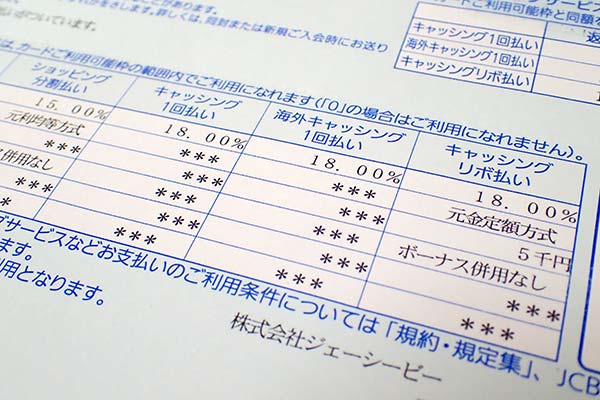 とがあります。
れがをさします。詳しくは、同封または新規ご入会時にお送り
払いがついています。
ご利用可能枠と同額を
キャッシング1回払い
海外キャッシング1回払い
キャッシングリボ払い
は、カードご利用可能枠の範囲内でご利用になれます(「0」の場合はご利用になれません)。
ショッピング 分割払い
キャッシング 1回払い
海外キャッシング 1回払い
キャッシング リボ払い
15.00% 18.00% 18.00% 18.00%
元利均等方式 *** *** 元金定額方式
*** *** *** 5千円
ス併用なし *** *** ボーナス併用なし
*** *** *** ***
*** *** *** ***
グサービスなどお支払いのご利用条件については「規約・規定集」、JCB
ます。
利用となります。
株式会社ジェーシービー